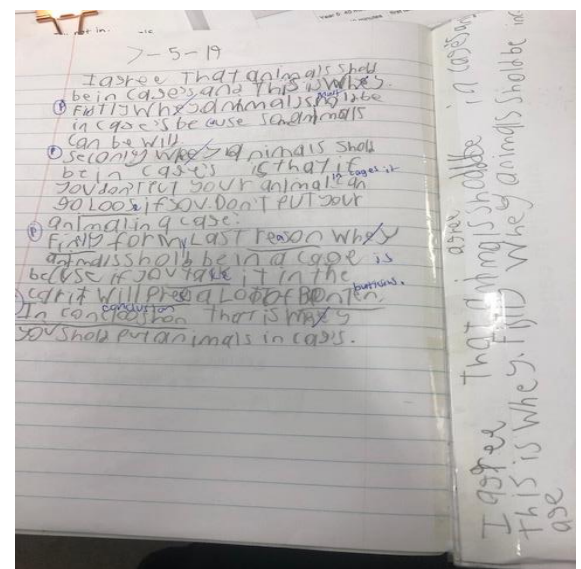 7-5-19
I agree That animals shold
be in cages and this is whey.
Firstly whey animals shold be
in cage is because som animals
can be wild.
seconly whey animals shold
be in cages is that if
in cages it
you don't put your animal can
go Loose if you Don't put your
animal in a case.
Finly for my Last reason whey
animals shold be in a cage is
because if you take it in the
buttons.
car it will pres a Lot of Bonten.
conclusion
In conclooshon that is whey
you shold put animals in cag's.
agree
I agree that animals should be in cages an
This is whey. Fistly whey animals shold be in
age